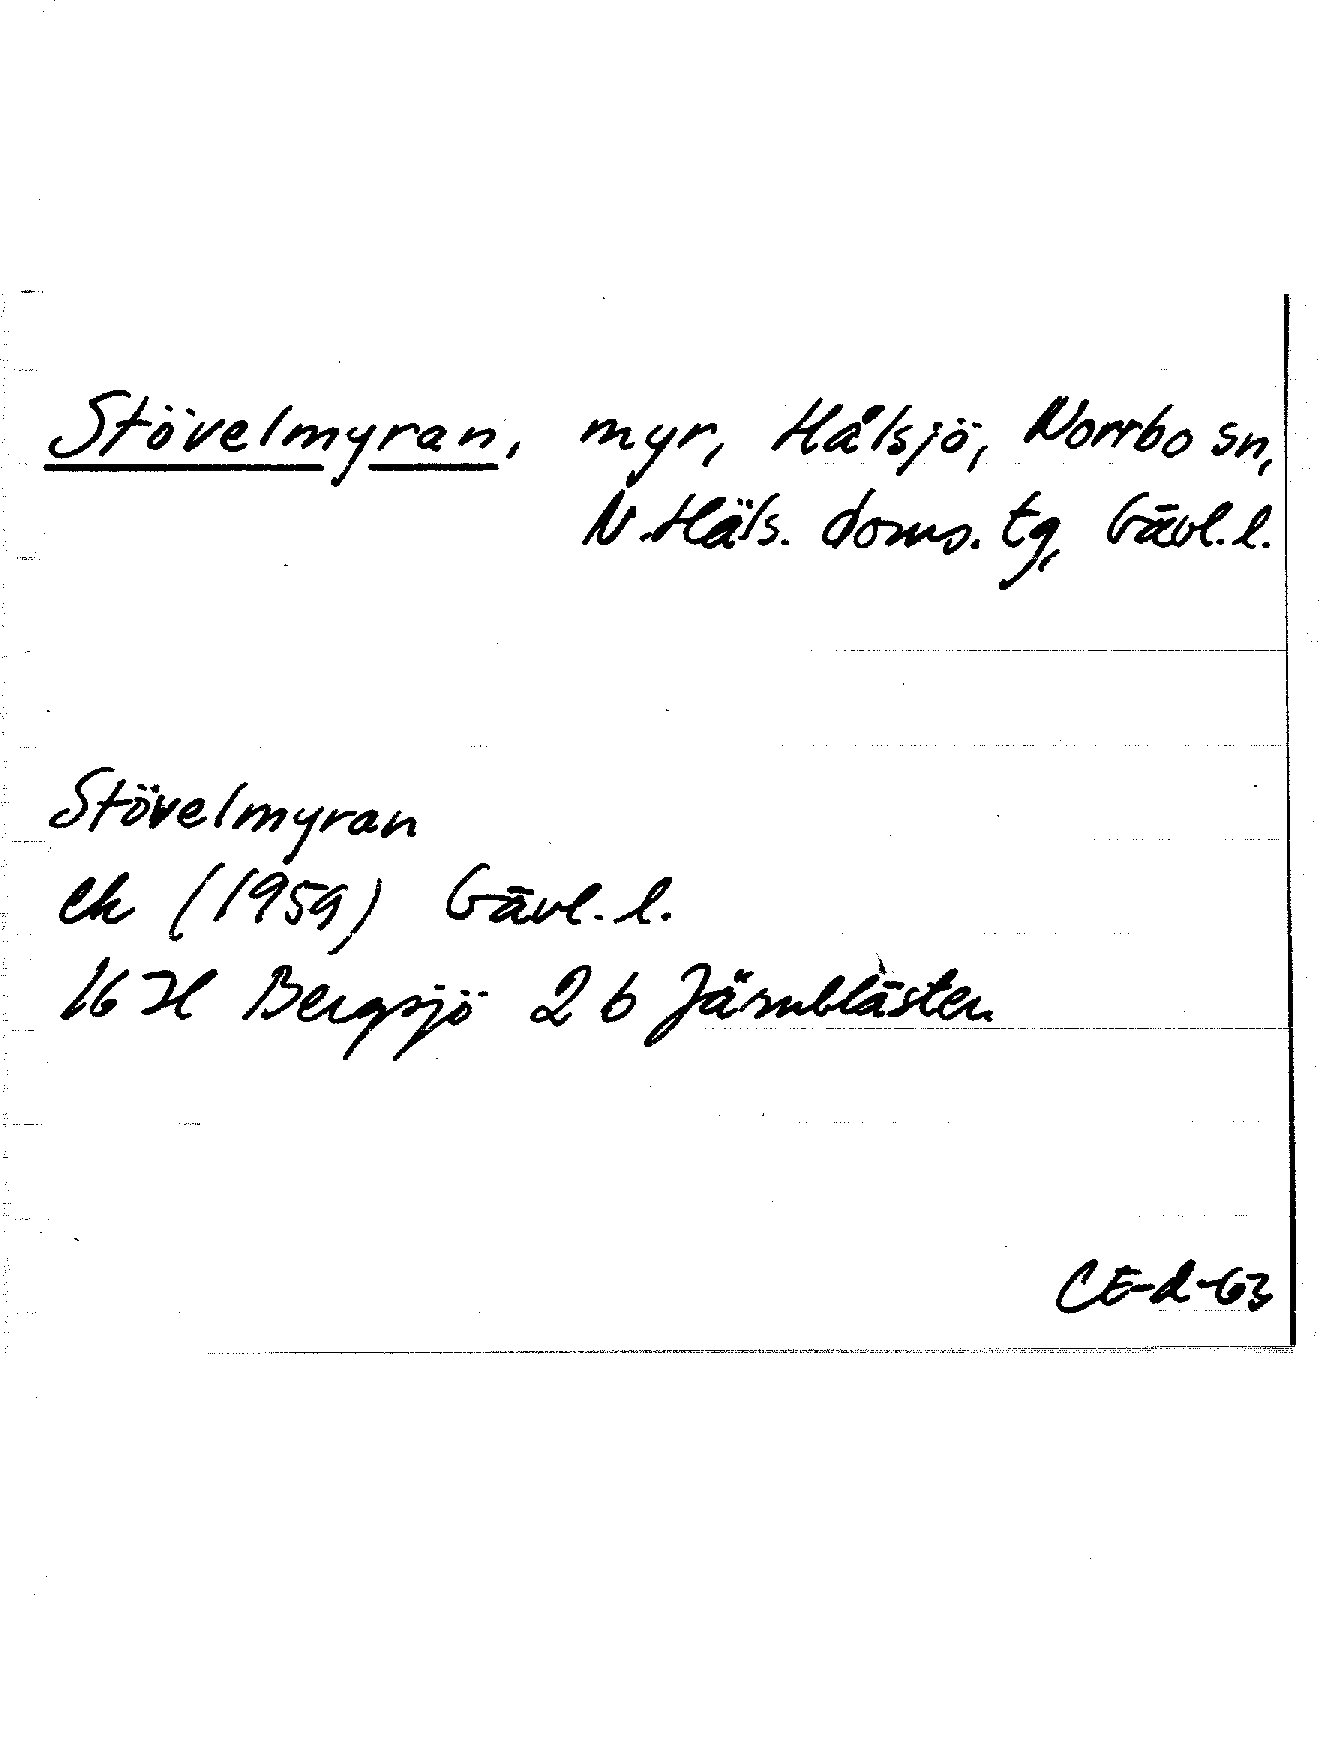 Stövelmyran, myr, Hålsjö, Norrbo sn,
N. Häls. doms. tg, Gävl. l.
Stövelmyran
ek (1959) Gävl. l.
16 H Bergsjö 2 b Järnblästen
CE-d-63